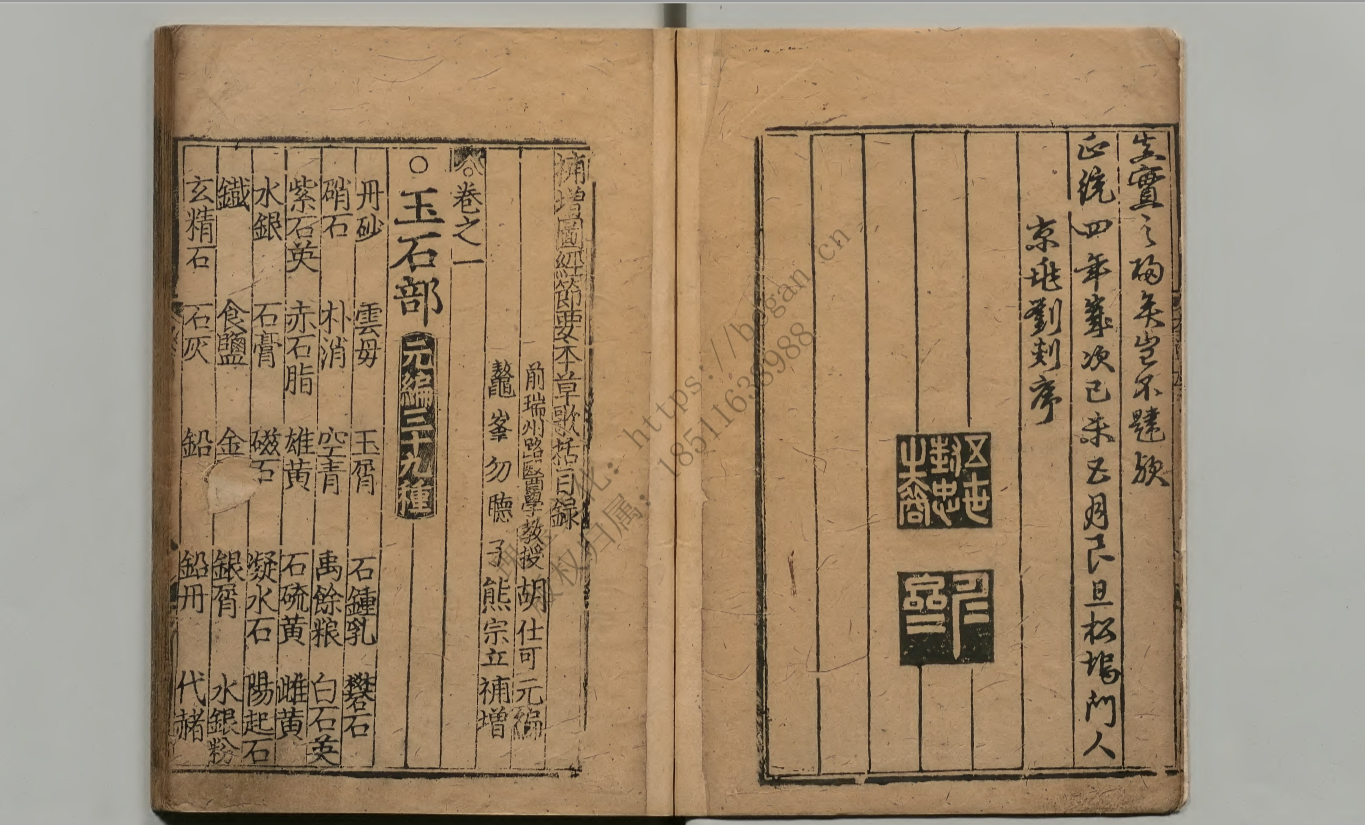 實之陽矣豈不韙歟
正統四年歲次己未五月良旦松塢門人
京兆劉剡序
五世封忠之裔
補增圖經節要本草歌括目錄
前瑞州路醫學教授胡仕可元編
鼇峯勿聽子熊宗立補增
卷之一
○玉石部 元編三十九種
丹砂 雲母 玉屑 石鍾乳 礬石
硝石 朴消 空青 禹餘粮 白石英
紫石英 赤石脂 雄黃 石硫黃 雌黃
水銀 石膏 磁石 凝水石 陽起石
鐵 食鹽 金 銀屑 水銀粉
玄精石 石灰 鉛 鉛丹 代赭
https://bogan.cn
版权归属：18511638988